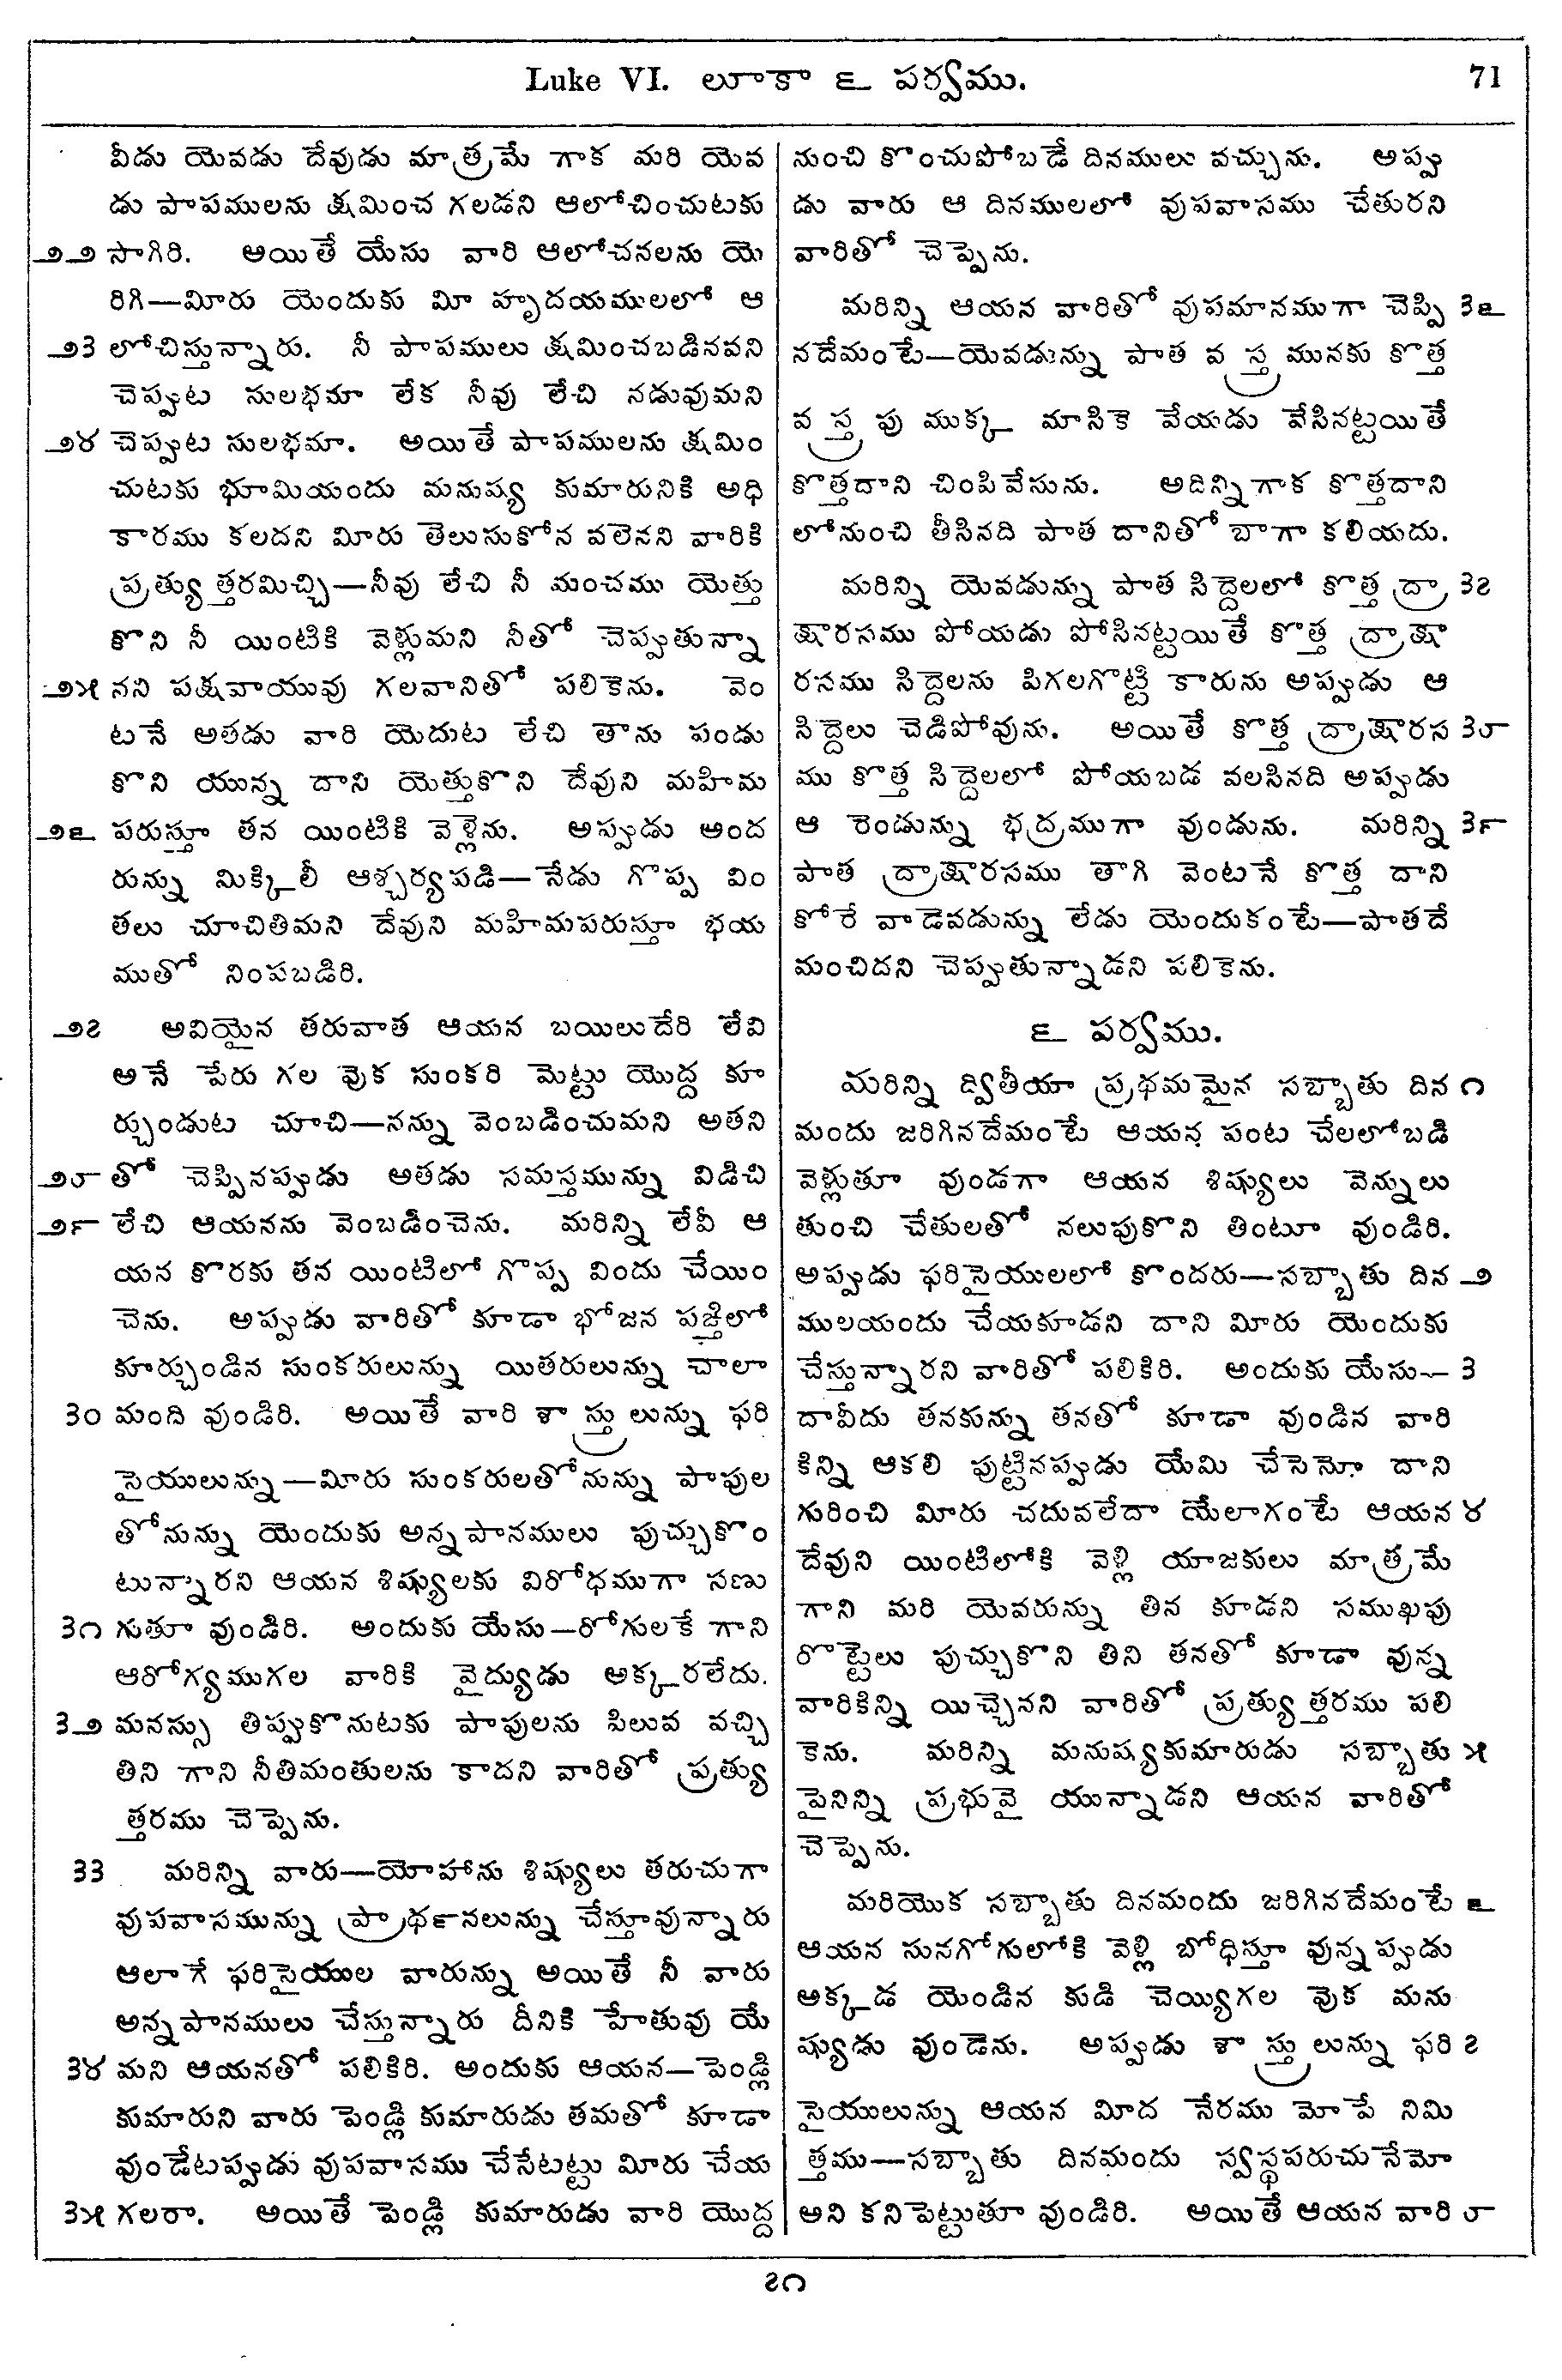 Luke VI. లూకా ౬ పర్వము. 71
వీడు యెవడు దేవుడు మాత్రమే గాక మరి యెవ
డు పాపములను క్షమించ గలడని ఆలోచించుటకు
౨౨ సాగిరి. అయితే యేసు వారి ఆలోచనలను యె
రిగి—మీరు యెందుకు మీ హృదయములలో ఆ
౨౩ లోచిస్తున్నారు. నీ పాపములు క్షమించబడినవని
చెప్పుట సులభమా లేక నీవు లేచి నడువుమని
౨౪ చెప్పుట సులభమా. అయితే పాపములను క్షమిం
చుటకు భూమియందు మనుష్య కుమారునికి అధి
కారము కలదని మీరు తెలుసుకోన వలెనని వారికి
ప్రత్యుత్తరమిచ్చి—నీవు లేచి నీ మంచము యెత్తు
కొని నీ యింటికి వెళ్లుమని నీతో చెప్పుతున్నా
౨౫ నని పక్షవాయువు గలవానితో పలికెను. వెం
టనే అతడు వారి యెదుట లేచి తాను పండు
కొని యున్న దాని యెత్తుకొని దేవుని మహిమ
౨౬ పరుస్తూ తన యింటికి వెళ్లెను. అప్పుడు అంద
రున్ను మిక్కిలీ ఆశ్చర్యపడి—నేడు గొప్ప విం
తలు చూచితిమని దేవుని మహిమపరుస్తూ భయ
ముతో నింపబడిరి.
౨౭ అవియైన తరువాత ఆయన బయిలుదేరి లేవి
అనే పేరు గల వొక సుంకరి మెట్టు యొద్ద కూ
ర్చుండుట చూచి—నన్ను వెంబడించుమని అతని
౨౮ తో చెప్పినప్పుడు అతడు సమస్తమున్ను విడిచి
౨౯ లేచి ఆయనను వెంబడించెను. మరిన్ని లేవీ ఆ
యన కొరకు తన యింటిలో గొప్ప విందు చేయిం
చెను. అప్పుడు వారితో కూడా భోజన పఙ్తిలో
కూర్చుండిన సుంకరులున్ను యితరులున్ను చాలా
౩౦ మంది వుండిరి. అయితే వారి శాస్త్రులున్ను ఫరి
సైయులున్ను—మీరు సుంకరులతోనున్ను పాపుల
తోనున్ను యెందుకు అన్నపానములు పుచ్చుకొం
టున్నారని ఆయన శిష్యులకు విరోధముగా సణు
౩౧ గుతూ వుండిరి. అందుకు యేసు—రోగులకే గాని
ఆరోగ్యముగల వారికి వైద్యుడు అక్కరలేదు.
౩౨ మనస్సు తిప్పుకొనుటకు పాపులను పిలువ వచ్చి
తిని గాని నీతిమంతులను కాదని వారితో ప్రత్యు
త్తరము చెప్పెను.
౩౩ మరిన్ని వారు—యోహాను శిష్యులు తరుచుగా
వుపవాసమున్ను ప్రార్థనలున్ను చేస్తూవున్నారు
ఆలాగే ఫరిసైయుల వారున్ను అయితే నీ వారు
అన్నపానములు చేస్తున్నారు దీనికి హేతువు యే
౩౪ మని ఆయనతో పలికిరి. అందుకు ఆయన—పెండ్లి
కుమారుని వారు పెండ్లి కుమారుడు తమతో కూడా
వుండేటప్పుడు వుపవాసము చేసేటట్టు మీరు చేయ
౩౫ గలరా. అయితే పెండ్లి కుమారుడు వారి యొద్ద
నుంచి కొంచుపోబడే దినములు వచ్చును. అప్పు
డు వారు ఆ దినములలో వుపవాసము చేతురని
వారితో చెప్పెను.
మరిన్ని ఆయన వారితో వుపమానముగా చెప్పి ౩౬
నదేమంటే—యెవడున్ను పాత వస్త్రమునకు కొత్త
వస్త్రపు ముక్క మాసికె వేయడు వేసినట్టయితే
కొత్తదాని చింపివేసును. అదిన్నిగాక కొత్తదాని
లోనుంచి తీసినది పాత దానితో బాగా కలియదు.
మరిన్ని యెవడున్ను పాత సిద్దెలలో కొత్త ద్రా ౩౭
క్షారసము పోయడు పోసినట్టయితే కొత్త ద్రాక్షా
రసము సిద్దెలను పిగలగొట్టి కారును అప్పుడు ఆ
సిద్దెలు చెడిపోవును. అయితే కొత్త ద్రాక్షారస ౩౮
ము కొత్త సిద్దెలలో పోయబడ వలసినది అప్పుడు
ఆ రెండున్ను భద్రముగా వుండును. మరిన్ని ౩౯
పాత ద్రాక్షారసము తాగి వెంటనే కొత్త దాని
కోరే వాడెవడున్ను లేడు యెందుకంటే—పాతదే
మంచిదని చెప్పుతున్నాడని పలికెను.
౬ పర్వము.
మరిన్ని ద్వితీయా ప్రథమమైన సబ్బాతు దిన ౧
మందు జరిగినదేమంటే ఆయన పంట చేలలోబడి
వెళ్లుతూ వుండగా ఆయన శిష్యులు వెన్నులు
తుంచి చేతులతో నలుపుకొని తింటూ వుండిరి.
అప్పుడు ఫరిసైయులలో కొందరు—సబ్బాతు దిన ౨
ములయందు చేయకూడని దాని మీరు యెందుకు
చేస్తున్నారని వారితో పలికిరి. అందుకు యేసు— ౩
దావీదు తనకున్ను తనతో కూడా వుండిన వారి
కిన్ని ఆకలి పుట్టినప్పుడు యేమి చేసెనో దాని
గురించి మీరు చదువలేదా యేలాగంటే ఆయన ౪
దేవుని యింటిలోకి వెళ్లి యాజకులు మాత్రమే
గాని మరి యెవరున్ను తిన కూడని సముఖపు
రొట్టెలు పుచ్చుకొని తిని తనతో కూడా వున్న
వారికిన్ని యిచ్చెనని వారితో ప్రత్యుత్తరము పలి
కెను. మరిన్ని మనుష్యకుమారుడు సబ్బాతు ౫
పైనిన్ని ప్రభువై యున్నాడని ఆయన వారితో
చెప్పెను.
మరియొక సబ్బాతు దినమందు జరిగినదేమంటే ౬
ఆయన సునగోగులోకి వెళ్లి బోధిస్తూ వున్నప్పుడు
అక్కడ యెండిన కుడి చెయ్యిగల వొక మను
ష్యుడు వుండెను. అప్పుడు శాస్త్రులున్ను ఫరి ౭
సైయులున్ను ఆయన మీద నేరము మోపే నిమి
త్తము—సబ్బాతు దినమందు స్వస్థపరుచునేమో
అని కనిపెట్టుతూ వుండిరి. అయితే ఆయన వారి ౮
౭౧